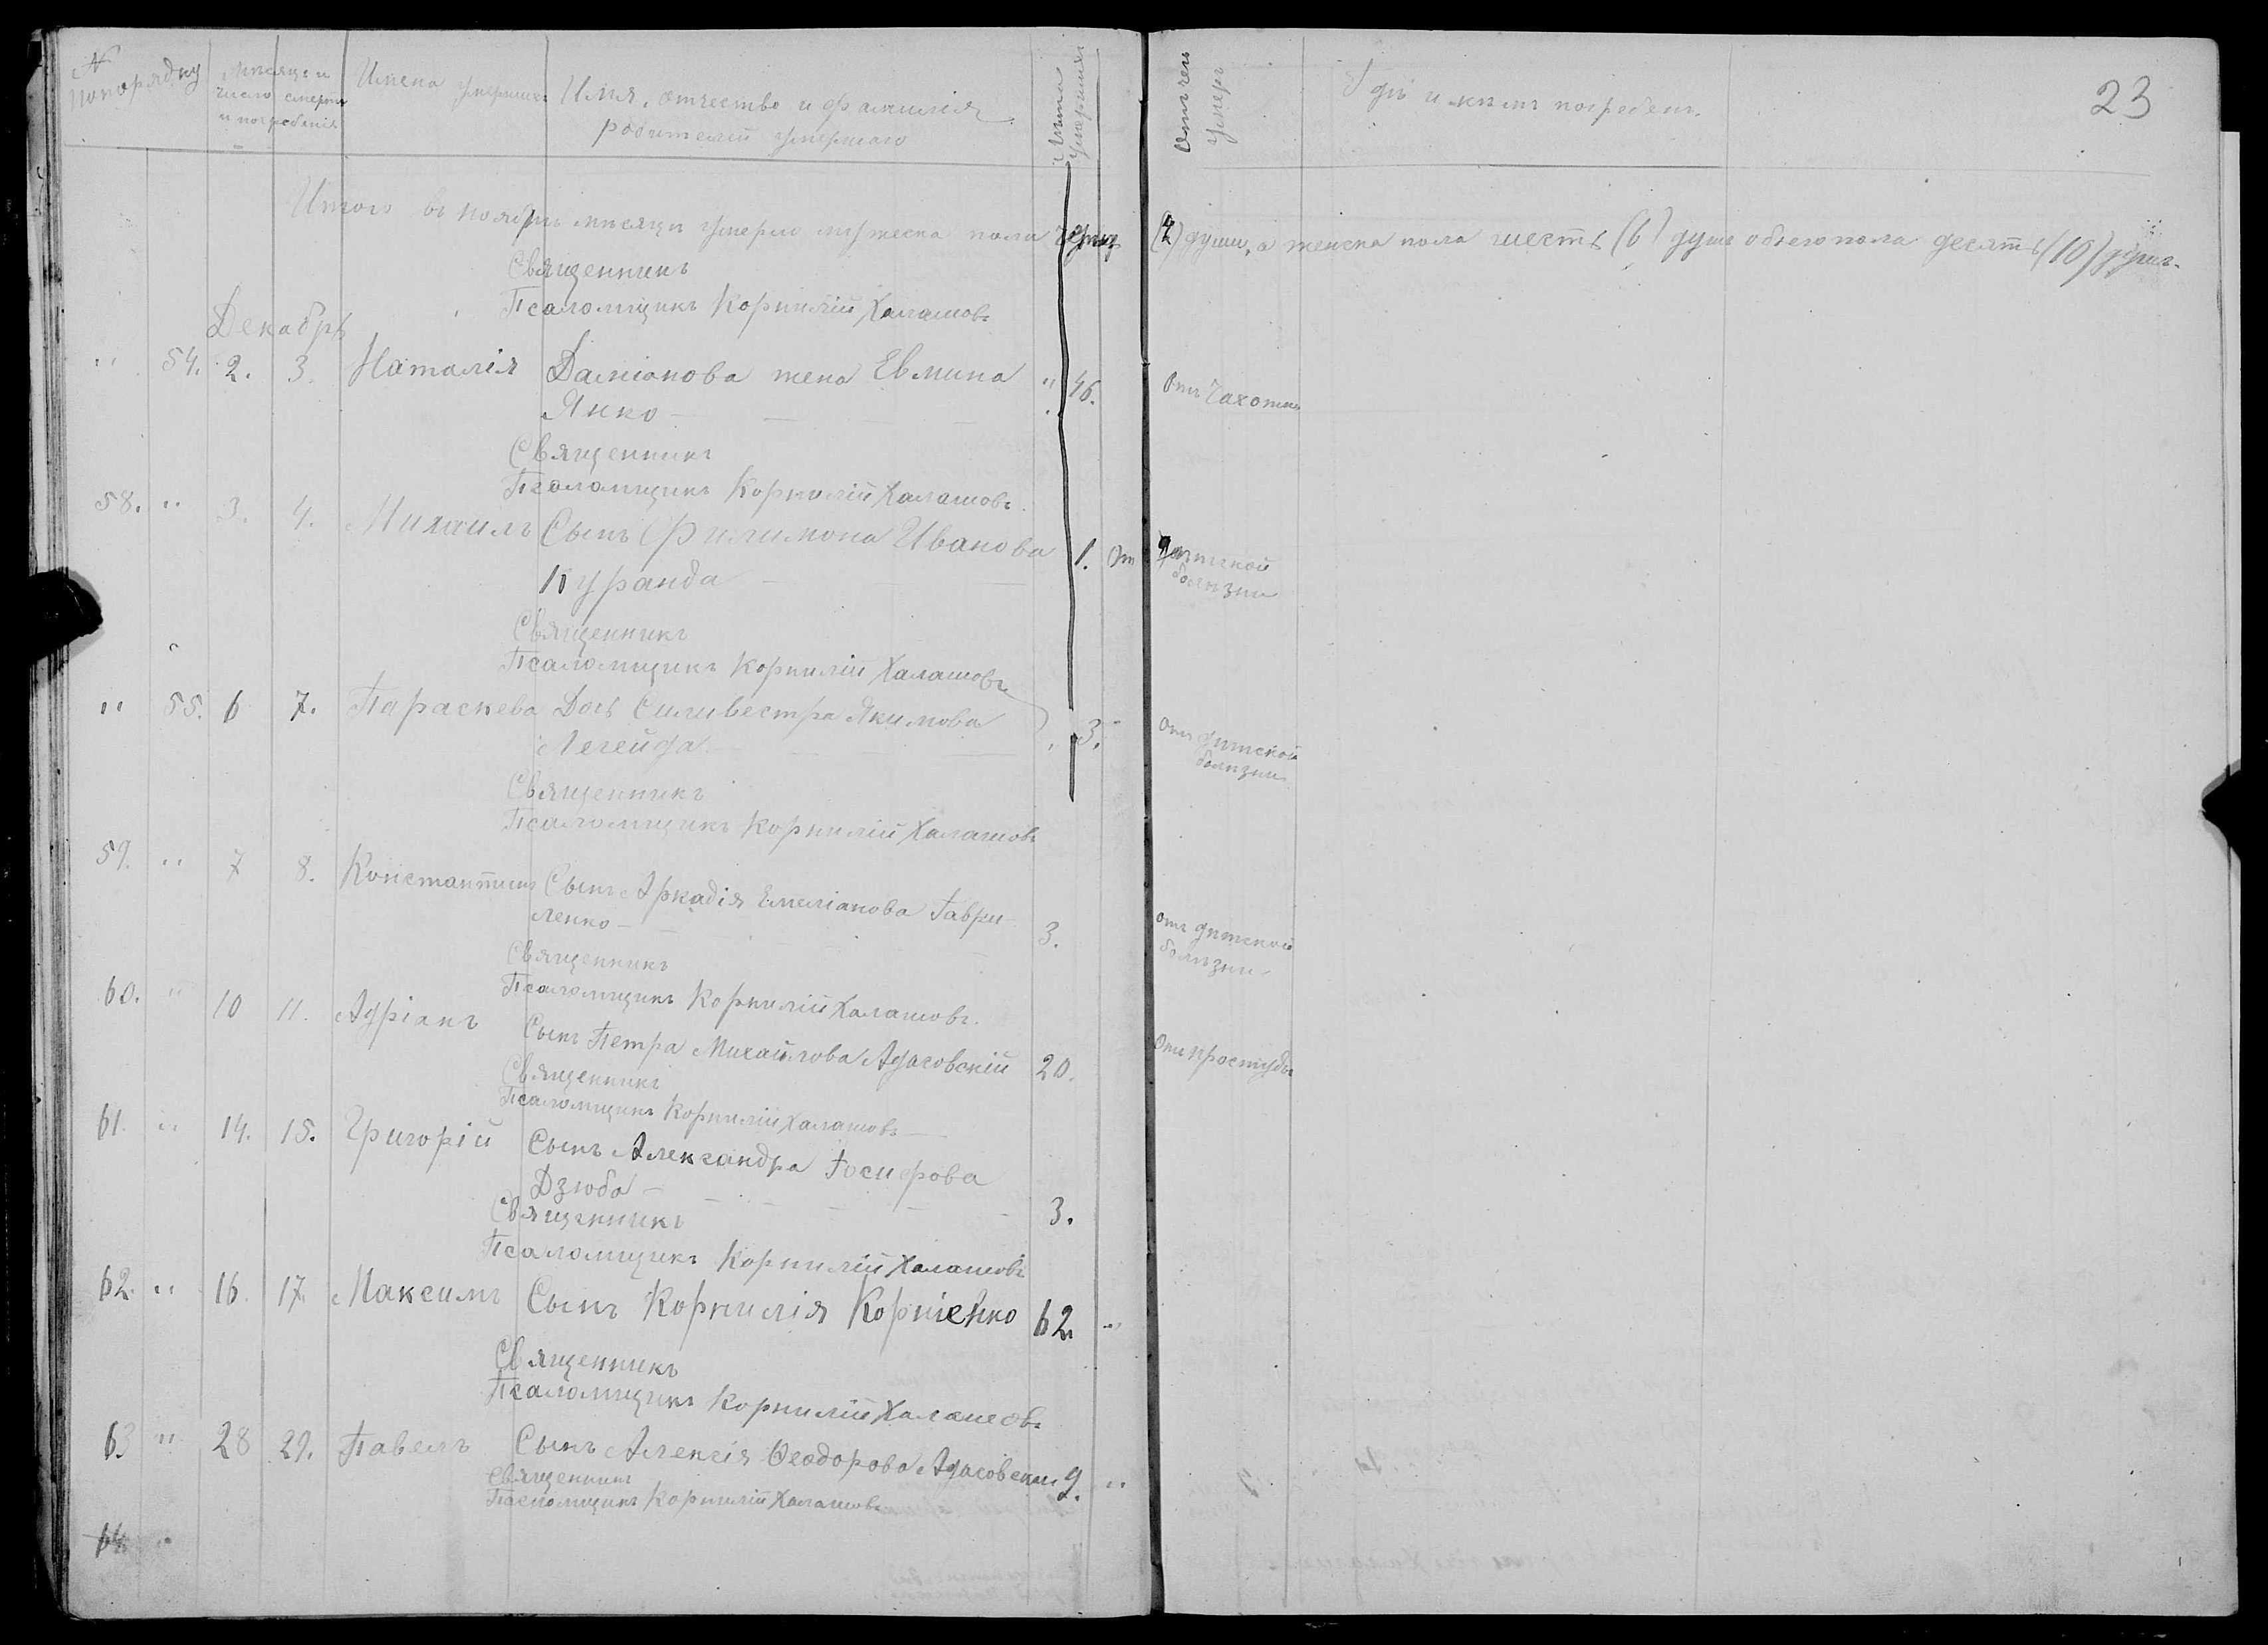 № по порядку
Мѣсяцъ и число смерти и погребенія
Имена умершихъ
Имя, отчество и фамилія родителей умершаго
Лѣта умершихъ
Отъ чего умеръ
Гдѣ и кѣмъ погребенъ.
23
Итого въ ноябрѣ мѣсяцѣ умерло мужеска пола четыре (4) души, а женска пола шесть (6) душъ обоего пола десять (10) душъ.
Священникъ
Псаломщикъ Корнилій Халашовъ
Декабрь
" 54. 2. 3. Наталія Даміанова жена Евмина " 46. Отъ чахотки
Янко
Священникъ
Псаломщикъ Корнилій Халашовъ.
58. " 3. 4. Михаилъ Сынъ Филимона Иванова 1. От дѣтской
Куранда болѣзни
Священникъ
Псаломщикъ Корнилій Халашовъ
" 55. 6 7. Параскева Дочь Силивестра Якимова 3. Отъ дѣтской
Легейда болѣзни
Священникъ
Псаломщикъ Корнилій Халашовъ
59. " 7 8. Константинъ Сынъ Аркадія Емеліанова Гаври
ленко 3. отъ дѣтской
болѣзни
Священникъ
Псаломщикъ Корнилій Халашовъ.
60. " 10 11. Адріанъ Сынъ Петра Михайлова Адасовскій 20. Отъ простуды
Священникъ
Псаломщикъ Корнилій Халашовъ
61. " 14. 15. Григорій Сынъ Александра Іосифова
Дзюба 3.
Священникъ
Псаломщикъ Корнилій Халашовъ
62. " 16. 17. Максимъ Сынъ Корнилія Корніенко 62. "
Священникъ
Псаломщикъ Корнилій Халашовъ
63 " 28 29. Павелъ Сынъ Алексія Ѳеодорова Адасовскій 9. "
Священникъ
Псаломщикъ Корнилій Халашовъ
64. "